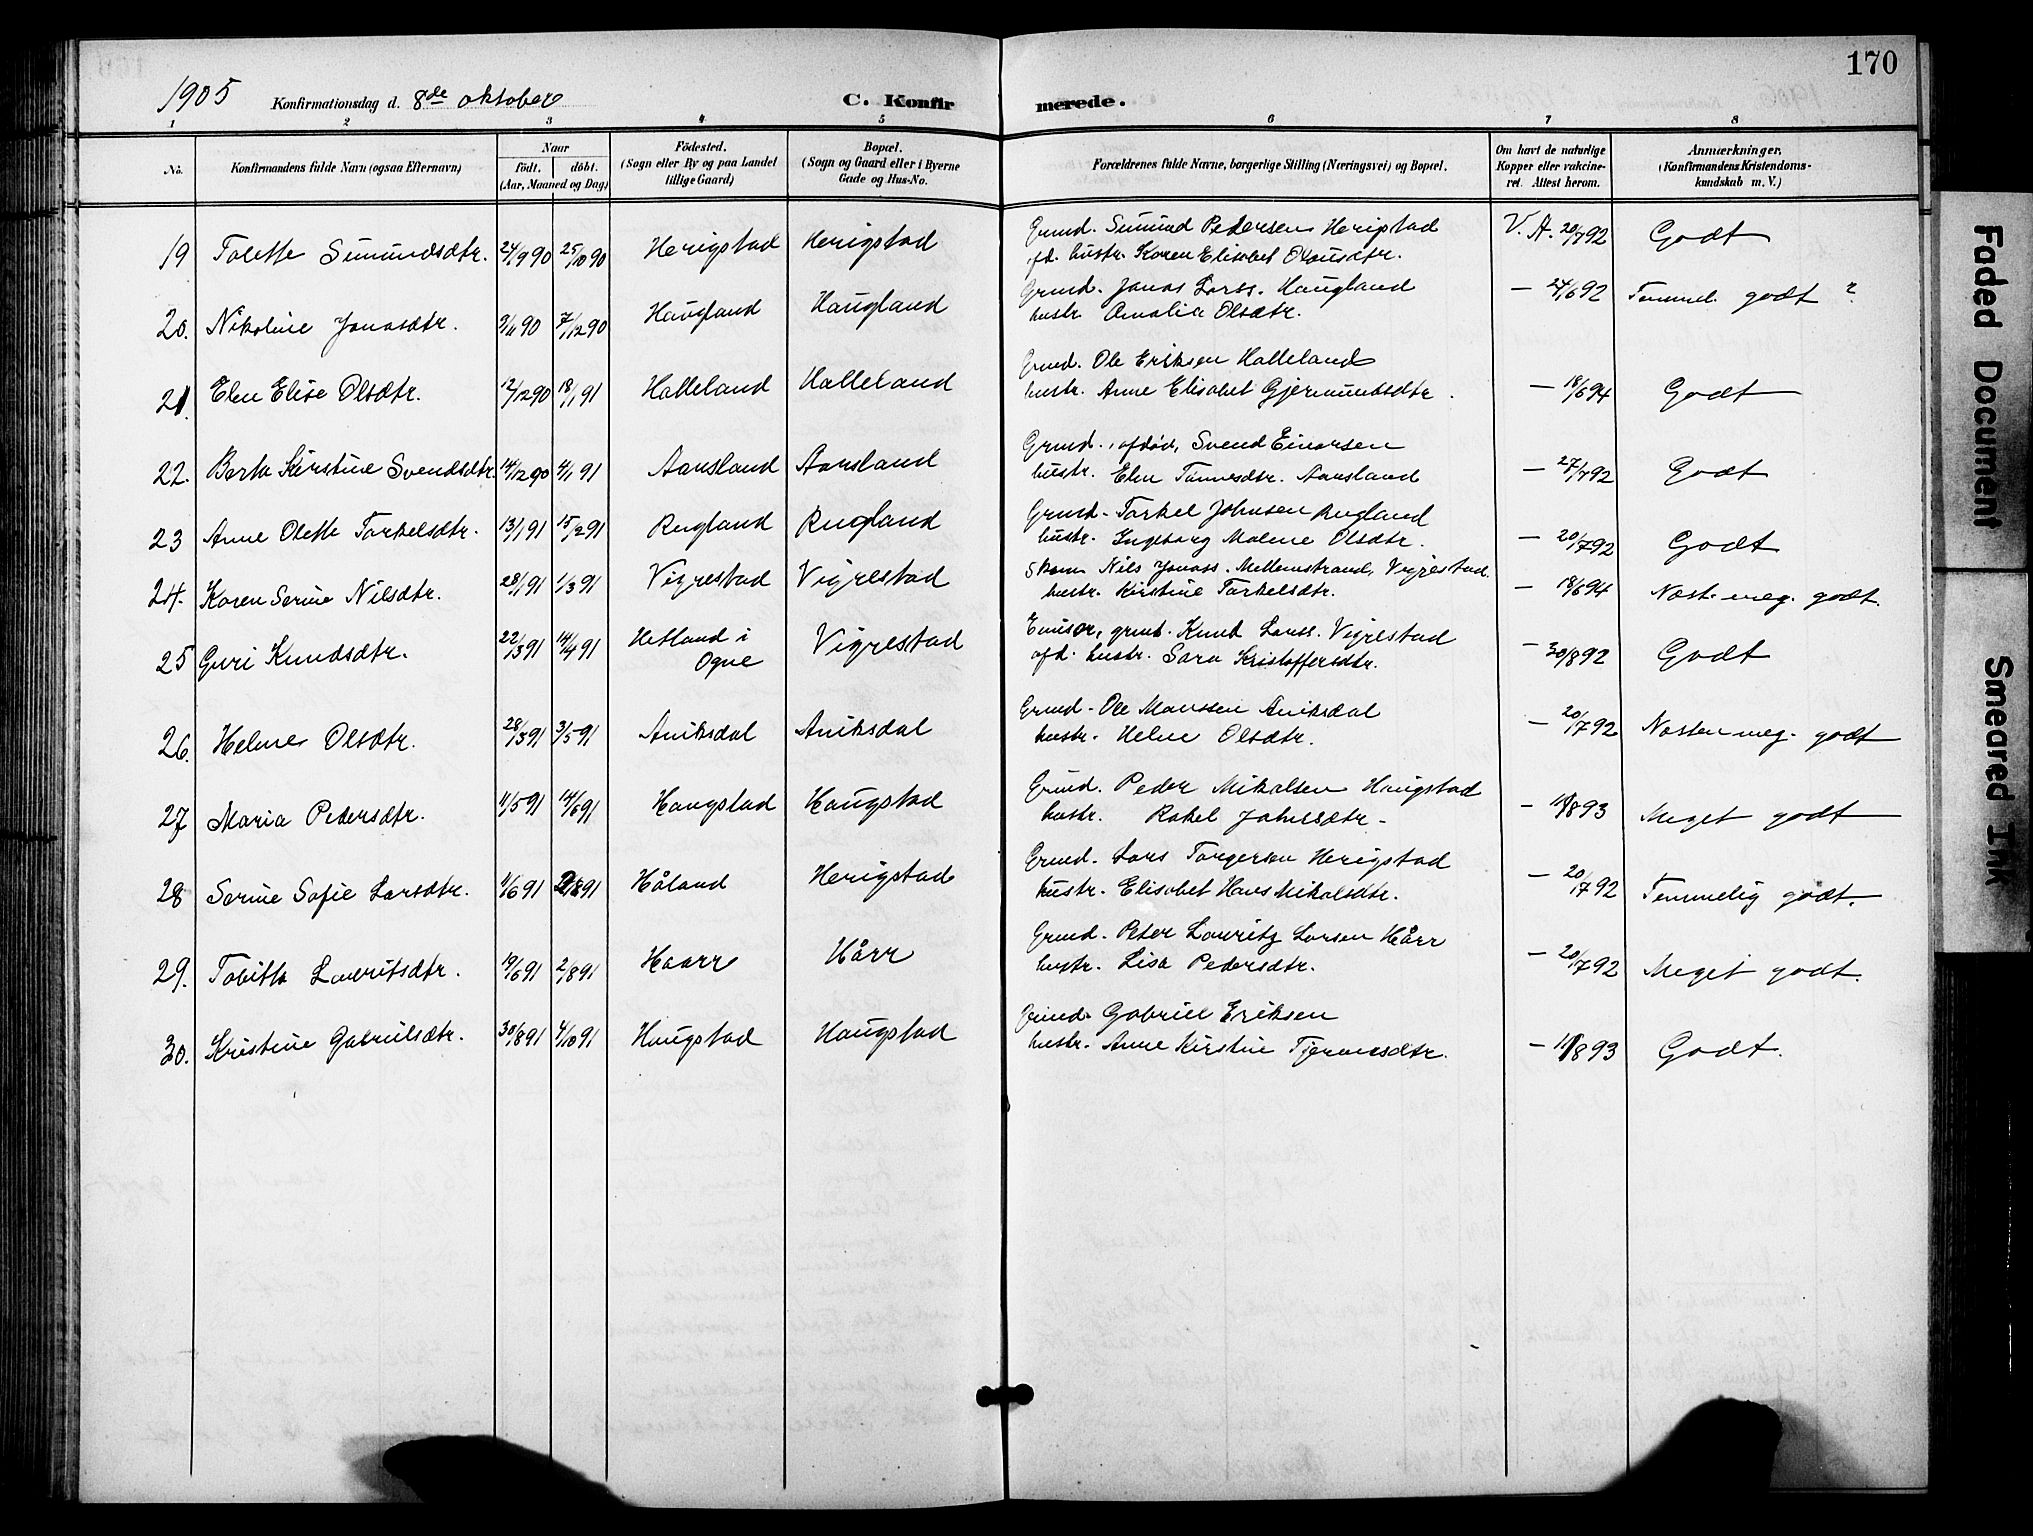 170
1905 Konfirmationsdag d. 8de oktober C. Konfirmerede.
1 2 3 4 5 6 7 8
No. Konfirmandens fulde Navn (ogsaa Efternavn) Naar födt. döbt. (Aar, Maaned og Dag) Födested. (Sogn eller By og paa Landet tillige Gaard) Bopæl. (Sogn og Gaard eller i Byerne Gade og Hus-No. Forældrenes fulde Navne, borgerlige Stilling (Næringsvei) og Bopæl. Om havt de naturlige Kopper eller vakcineret. Attest herom. Anmærkninger. (Konfirmandens Kristendomskundskab m. V.)
Grmd. Simund Pedersen Herigstad
19 Tolette Simundsdtr. 24/9 90 25/10 90 Herigstad Herigstad V. A. 20/7 92 Godt
afd. hustr. Karen Elisabet
Grmd. Jonas Larss. Haugland
20. Nikoline Jonasdtr. 9/11 90 7/12 90 Haugland Haugland — 24/6 92 Temmel. godt ?
hustr. Amalia Olsdtr.
Grmd. Ole Eriksen Halleland
21. Elen Elise Olsdtr. 12/12 90 18/1 91 Halleland Halleland — 18/6 94 Godt
hustr. Anne Elisabet Gjermundsdtr.
Grmd. afdød, Svend Einarsen
22. Berta Kirstine Svendsdtr. 14/12 90 4/1 91 Aarsland Aarsland — 27/7 92 Godt
hustr. Elen Tønnesdtr. Aarsland
Grmd. Torkel Johnsen Rugland
23 Anne Olette Torkelsdtr. 13/1 91 15/2 91 Rugland Rugland — 20/7 92 Godt
hustr. Ingeborg Malene Olsdtr.
Skom. Nils Jonass. Mellemstrand, Vigrestad.
24. Karen Serine Nilsdtr. 28/1 91 1/3 91 Vigrestad Vigrestad — 18/6 94 Næst. meg. godt.
hustr. Kirstine Torkelsdtr.
grmd. Knud Larss. Vigrestad
25 Guri Knudsdtr. 22/3 91 14/4 91 Hetland i Ogne Vigrestad — 30/8 92 Godt
afd. hustr. Sara Kristoffersdtr.
Grmd. Ole Monssen Aniksdal
26. Helene Olsdtr. 28/3 91 3/5 91 Aniksdal Aniksdal — 20/7 92 Næsten meg. godt
hustr. Helene Olsdtr.
Grmd. Peder Mikalsen Haugstad
27 Maria Pedersdtr. 1/5 91 14/6 91 Haugstad Haugstad — 11/8 93 Meget godt
hustr. Rakel
Grmd. Lars Torgersen Herigstad
28 Serine Sofie Larsdtr. 1/6 91 2/8 91 Håland Herigstad — 20/7 92 Temmelig godt.
hustr. Elisabet Hans Mikalsdtr.
Grmd. Peter Lauritz Larsen Hårr
29. Tobitta Lauritsdtr. 19/6 91 2/8 91 Haarr Hårr — 20/7 92 Meget godt.
hustr. Lisa Pedersdtr.
Grmd. Gabriel Eriksen
30. Kristine Gabrielsdtr. 30/8 91 4/10 91 Haugstad Haugstad — 11/8 93 Godt.
hustr. Anne Kirstine
Faded Document
Smeared Ink